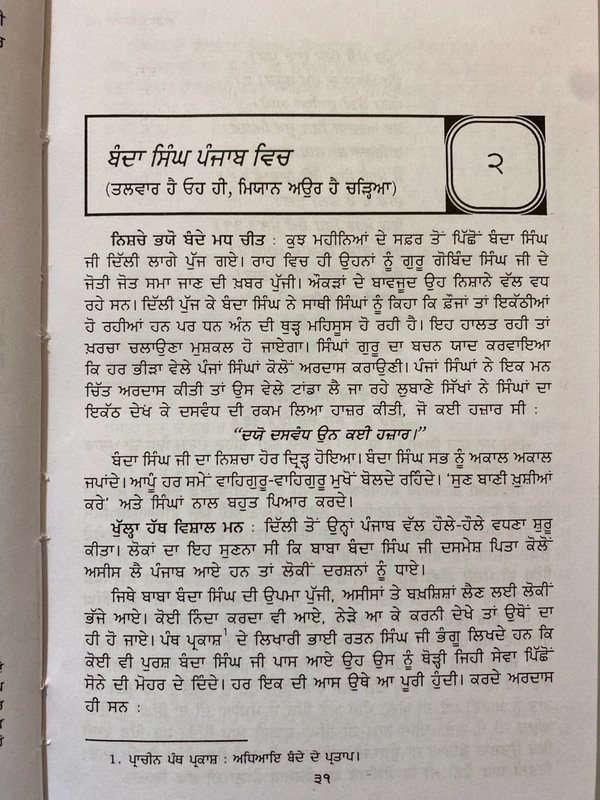 ਬੰਦਾ ਸਿੰਘ ਪੰਜਾਬ ਵਿਚ
(ਤਲਵਾਰ ਹੈ ਓਹ ਹੀ, ਮਿਯਾਨ ਅਉਰ ਹੈ ਚੜ੍ਹਿਆ)
੨
ਨਿਸ਼ਚੇ ਭਯੋ ਬੰਦੇ ਮਧ ਚੀਤ : ਕੁਝ ਮਹੀਨਿਆਂ ਦੇ ਸਫ਼ਰ ਤੋਂ ਪਿੱਛੋਂ ਬੰਦਾ ਸਿੰਘ
ਜੀ ਦਿੱਲੀ ਲਾਗੇ ਪੁੱਜ ਗਏ। ਰਾਹ ਵਿਚ ਹੀ ਉਹਨਾਂ ਨੂੰ ਗੁਰੂ ਗੋਬਿੰਦ ਸਿੰਘ ਜੀ ਦੇ
ਜੋਤੀ ਜੋਤ ਸਮਾ ਜਾਣ ਦੀ ਖ਼ਬਰ ਪੁੱਜੀ। ਔਕੜਾਂ ਦੇ ਬਾਵਜੂਦ ਉਹ ਨਿਸ਼ਾਨੇ ਵੱਲ ਵਧ
ਰਹੇ ਸਨ। ਦਿੱਲੀ ਪੁੱਜ ਕੇ ਬੰਦਾ ਸਿੰਘ ਨੇ ਸਾਥੀ ਸਿੰਘਾਂ ਨੂੰ ਕਿਹਾ ਕਿ ਫ਼ੌਜਾਂ ਤਾਂ ਇਕੱਠੀਆਂ
ਹੋ ਰਹੀਆਂ ਹਨ ਪਰ ਧਨ ਅੰਨ ਦੀ ਥੁੜ੍ਹ ਮਹਿਸੂਸ ਹੋ ਰਹੀ ਹੈ। ਇਹ ਹਾਲਤ ਰਹੀ ਤਾਂ
ਖ਼ਰਚਾ ਚਲਾਉਣਾ ਮੁਸ਼ਕਲ ਹੋ ਜਾਏਗਾ। ਸਿੰਘਾਂ ਗੁਰੂ ਦਾ ਬਚਨ ਯਾਦ ਕਰਵਾਇਆ
ਕਿ ਹਰ ਭੀੜਾ ਵੇਲੇ ਪੰਜਾਂ ਸਿੰਘਾਂ ਕੋਲੋਂ ਅਰਦਾਸ ਕਰਾਉਣੀ। ਪੰਜਾਂ ਸਿੰਘਾਂ ਨੇ ਇਕ ਮਨ
ਚਿੱਤ ਅਰਦਾਸ ਕੀਤੀ ਤਾਂ ਉਸ ਵੇਲੇ ਟਾਂਡਾ ਲੈ ਜਾ ਰਹੇ ਲੁਬਾਣੇ ਸਿੱਖਾਂ ਨੇ ਸਿੰਘਾਂ ਦਾ
ਇਕੱਠ ਦੇਖ ਕੇ ਦਸਵੰਧ ਦੀ ਰਕਮ ਲਿਆ ਹਾਜ਼ਰ ਕੀਤੀ, ਜੋ ਕਈ ਹਜ਼ਾਰ ਸੀ :
“ਦਯੋ ਦਸਵੰਧ ਉਨ ਕਈ ਹਜ਼ਾਰ।”
ਬੰਦਾ ਸਿੰਘ ਜੀ ਦਾ ਨਿਸ਼ਚਾ ਹੋਰ ਦ੍ਰਿੜ੍ਹ ਹੋਇਆ। ਬੰਦਾ ਸਿੰਘ ਸਭ ਨੂੰ ਅਕਾਲ ਅਕਾਲ
ਜਪਾਂਦੇ। ਆਪੂੰ ਹਰ ਸਮੇਂ ਵਾਹਿਗੁਰੂ-ਵਾਹਿਗੁਰੂ ਮੁਖੋਂ ਬੋਲਦੇ ਰਹਿੰਦੇ। ‘ਸੁਣ ਬਾਣੀ ਖ਼ੁਸ਼ੀਆਂ
ਕਰੇ’ ਅਤੇ ਸਿੰਘਾਂ ਨਾਲ ਬਹੁਤ ਪਿਆਰ ਕਰਦੇ।
ਖੁੱਲ੍ਹਾ ਹੱਥ ਵਿਸ਼ਾਲ ਮਨ : ਦਿੱਲੀ ਤੋਂ ਉਨ੍ਹਾਂ ਪੰਜਾਬ ਵੱਲ ਹੌਲੇ-ਹੌਲੇ ਵਧਣਾ ਸ਼ੁਰੂ
ਕੀਤਾ। ਲੋਕਾਂ ਦਾ ਇਹ ਸੁਣਨਾ ਸੀ ਕਿ ਬਾਬਾ ਬੰਦਾ ਸਿੰਘ ਜੀ ਦਸਮੇਸ਼ ਪਿਤਾ ਕੋਲੋਂ
ਅਸੀਸ ਲੈ ਪੰਜਾਬ ਆਏ ਹਨ ਤਾਂ ਲੋਕੀਂ ਦਰਸ਼ਨਾਂ ਨੂੰ ਧਾਏ।
ਜਿਥੇ ਬਾਬਾ ਬੰਦਾ ਸਿੰਘ ਦੀ ਉਪਮਾ ਪੁੱਜੀ, ਅਸੀਸਾਂ ਤੇ ਬਖ਼ਸ਼ਿਸ਼ਾਂ ਲੈਣ ਲਈ ਲੋਕੀਂ
ਭੱਜੇ ਆਏ। ਕੋਈ ਨਿੰਦਾ ਕਰਦਾ ਵੀ ਆਏ, ਨੇੜੇ ਆ ਕੇ ਕਰਨੀ ਦੇਖੇ ਤਾਂ ਉਥੋਂ ਦਾ
ਹੀ ਹੋ ਜਾਏ। ਪੰਥ ਪ੍ਰਕਾਸ਼¹ ਦੇ ਲਿਖਾਰੀ ਭਾਈ ਰਤਨ ਸਿੰਘ ਜੀ ਭੰਗੂ ਲਿਖਦੇ ਹਨ ਕਿ
ਕੋਈ ਵੀ ਪੁਰਸ਼ ਬੰਦਾ ਸਿੰਘ ਜੀ ਪਾਸ ਆਏ ਉਹ ਉਸ ਨੂੰ ਥੋੜ੍ਹੀ ਜਿਹੀ ਸੇਵਾ ਪਿੱਛੋਂ
ਸੋਨੇ ਦੀ ਮੋਹਰ ਦੇ ਦਿੰਦੇ। ਹਰ ਇਕ ਦੀ ਆਸ ਉਥੇ ਆ ਪੂਰੀ ਹੁੰਦੀ। ਕਰਦੇ ਅਰਦਾਸ
ਹੀ ਸਨ :
1. ਪ੍ਰਾਚੀਨ ਪੰਥ ਪ੍ਰਕਾਸ਼ : ਅਧਿਆਇ ਬੰਦੇ ਦੇ ਪ੍ਰਤਾਪ।
੩੧